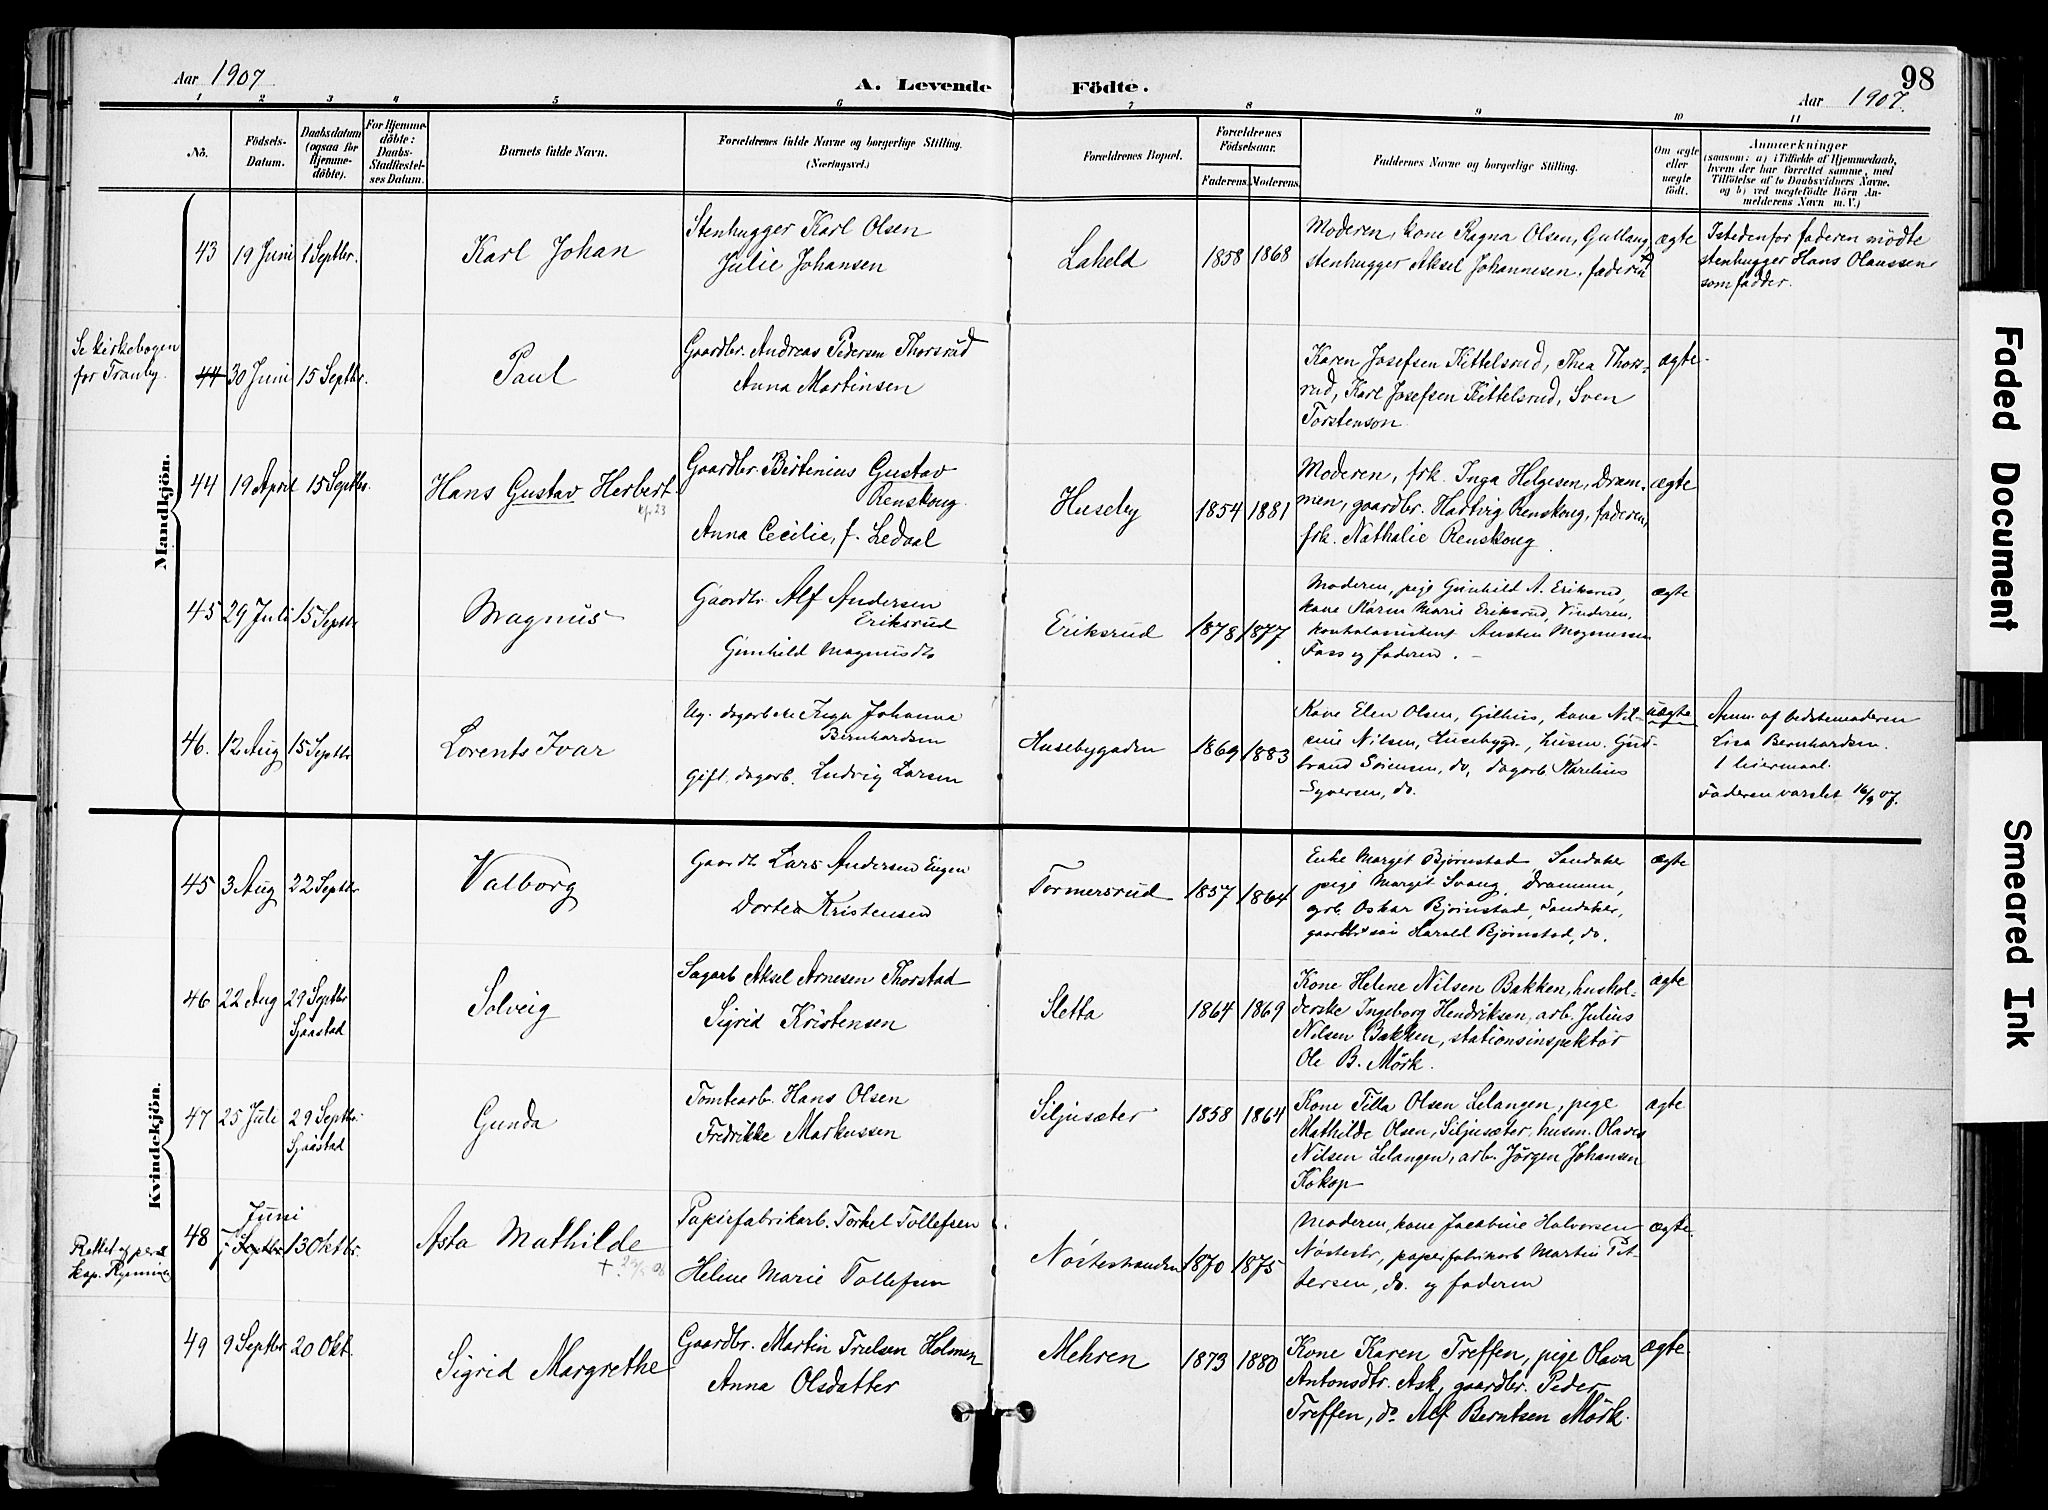 98
Aar 1907
A. Levende Födte.
Aar 1907.
1 2 3 4 5 6 7 8 9 10 11
No.
Födsels-
Datum.
Daabsdatum
(ogsaa for
Hjemme-
döbte).
For Hjemme-
döbte:
Daabs-
Stadfæstel-
ses Datum.
Barnets fulde Navn.
Forældrenes fulde Navne og borgerlige Stilling.
(Næringsvei.)
Forældrenes Bopæl.
Forældrenes
Födselsaar.
Faderens. Moderens.
Faddernes Navne og borgerlige Stilling.
Om ægte
eller
uægte
födt.
Anmærkninger
(saasom: a) i Tilfælde af Hjemmedaab,
hvem der har forrettet samme, med
Tilföielse af to Daabsvidners Navne,
og b) ved uegtefödte Börn An-
melderens Navn m. V.)
Mandkjön.
43 19 Juni 1 Septbr.
Karl Johan
Stenhugger Karl Olsen
Julie Johansen
Laheld 1858 1868
Moderen, kone Ragna Olsen, Gullaug
stenhugger Aksel Johannesen, faderen
ægte
Istedenfor faderen mödte
stenhugger Hans Olaussen
som fadder.
Se kirkebogen
for Tranby.
44 30 Juni 15 Septbr.
Paul
Gaardbr. Andreas Pedersen Thorsrud
Anna Martinsen
Karen Josefsen Kittelsrud, Thea Thors-
rud, Karl Josefsen Kittelsrud, Sven
Torstenson
ægte
44 19 April 15 Septbr.
Hans Gustav Herbert
Gaardbr. Bertinius Gustav
Renskoug
Anna Cecilie, f. Ledaal
Huseby 1854 1881
Moderen, frk. Inga Helgesen, Dram-
men, gaardbr. Hartvig Renskoug, faderen,
frk. Nathalie Renskoug
ægte
45 29 Juli 15 Septbr
Magnus
Gaardbr. Alf Andersen
Eriksrud
Gunhild Magnusdtr
Eriksrud 1878 1877
Moderen, pige Gunhild A. Eriksrud,
kone Karen Marie Eriksrud, Vinderen,
Magnussen
Foss og faderen.
ægte
46. 12 Aug 15 Septbr
Lorents Ivar
Ug. dagarb.ske Inga Johanna
Bernhardsen
Gift. dagarb. Ludvig Larsen
Husebygaden 1869 1883
Kone Elen Olsen, Gilhus, kone Nil-
sine Nilsen, Husebygd., husm. Gud-
brand Sörensen, do, dagarb. Karelius
Syversen, do.
uægte
Anm. af bedstemoderen
Lisa Bernhardsen.
1 leiermaal.
Faderen varslet 16/9 07.
Kvindekjön.
45 3 Aug 22 Septbr
Valborg
Gaardbr Lars Andersen Eugen
Dortea Kristensen
Tormersrud 1857 1864
Enke Margit Bjørnstad Sandaker
pige Margit Svang, Drammen,
grb. Oskar Bjørnstad, Sandaker,
Harald Bjørnstad, do.
ægte
46 22 Aug 29 Septbr
Sjåstad
Solveig
Sagarb Aksel Arnesen Thorstad
Sigrid Kristensen
Sletta 1864 1869
Kone Helene Nilsen Bakken, hushol-
derske Ingeborg Hendriksen, arb. Julius
Nilsen Bakken, stationsinspektör
Ole B. Mörk.
ægte
47 25 Juli 29 Septbr.
Sjåstad
Gunda
Tomtearb. Hans Olsen
Fredrikke Markussen
Siljusæter 1858 1864
Kone Tilla Olsen Lelangen, pige
Mathilde Olsen, Siljusæter, husm. Olaves
Nilsen Lelangen, arb. Jörgen Johansen
Kokop
ægte
48 Juni
7 Septbr 13 Oktbr.
Asta Mathilde
Papirfabrikarb. Torkel Tollefsen
Helene Marie Tollefsen
1870 1875
Moderen, kone Jacobine Halvorsen
Nöstestr, papirfabrikarb Martin Pet-
tersen, do. og faderen
ægte.
49 9 Septbr 20 Okt.
Sigrid Margrethe
Gaardbr. Martin Trulsen Holmen
Anna Olsdatter
Mehren 1873 1880
Kone Karen Treffen, pige Olava
Antonsdtr. Ask, gaardbr. Peder
Treffen, do. Alf Berntsen Mörk.
ægte.
Faded Document
Smeared Ink